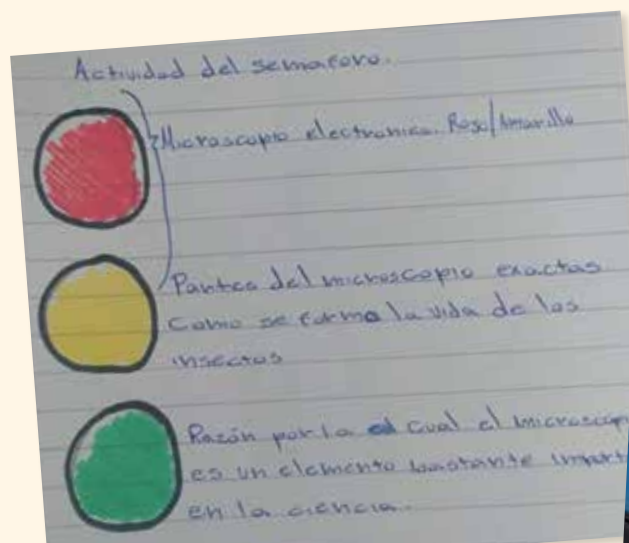 Actividad del semaforo.
Microscopio electronico. Rojo/Amarillo
Partes del microscopio exactas
Como se forma la vida de los
insectos
Razón por la cual el microscop
es un elemento bastante import
en la ciencia.